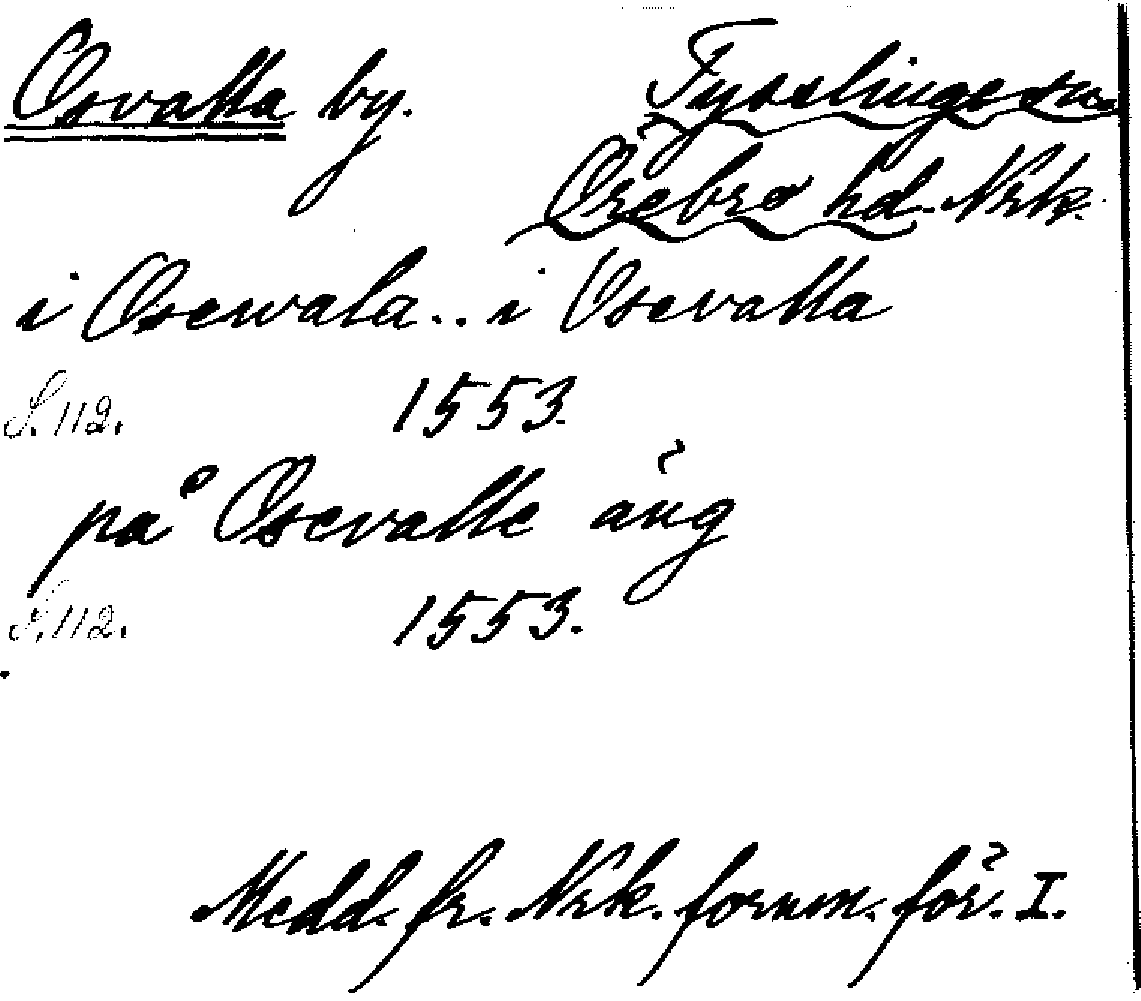 Osvalla by. Tysslinge sn.
Örebro hd. Nrk.
i Osewala.. i Osevalla
S. 112. 1553.
på Osevalle äng
S. 112. 1553.
Medd. fr. Nrk. fornm. för. I.